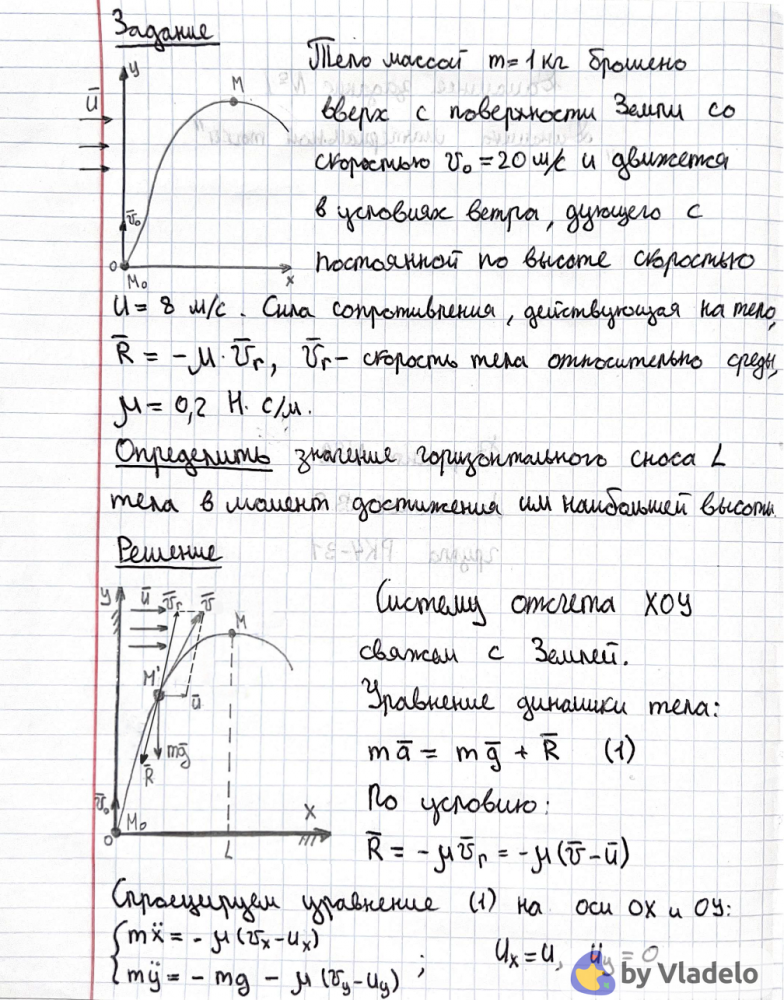 Задание
y
M
ū
v̄₀
O
M₀
x
Тело массой m = 1 кг брошено
вверх с поверхности Земли со
скоростью v₀ = 20 м/с и движется
в условиях ветра, дующего с
постоянной по высоте скоростью
U = 8 м/с. Сила сопротивления, действующая на тело,
R̄ = -μ·v̄r, v̄r - скорость тела относительно среды,
μ = 0,2 Н·с/м.
Определить значение горизонтального сноса L
тела в момент достижения им наибольшей высоты.
Решение
y
ū
v̄r
v̄
M
M'
ū
mḡ
R̄
v̄₀
M₀
O
L
X
Систему отсчета XOY
свяжем с Землей.
Уравнение динамики тела:
mā = mḡ + R̄ (1)
По условию:
R̄ = -μv̄r = -μ(v̄-ū)
Спроецируем уравнение (1) на оси OX и OY:
mẍ = -μ(vx-Ux)
mÿ = -mg - μ(vy-Uy) ; Ux = U, Uy = 0
by Vladelo